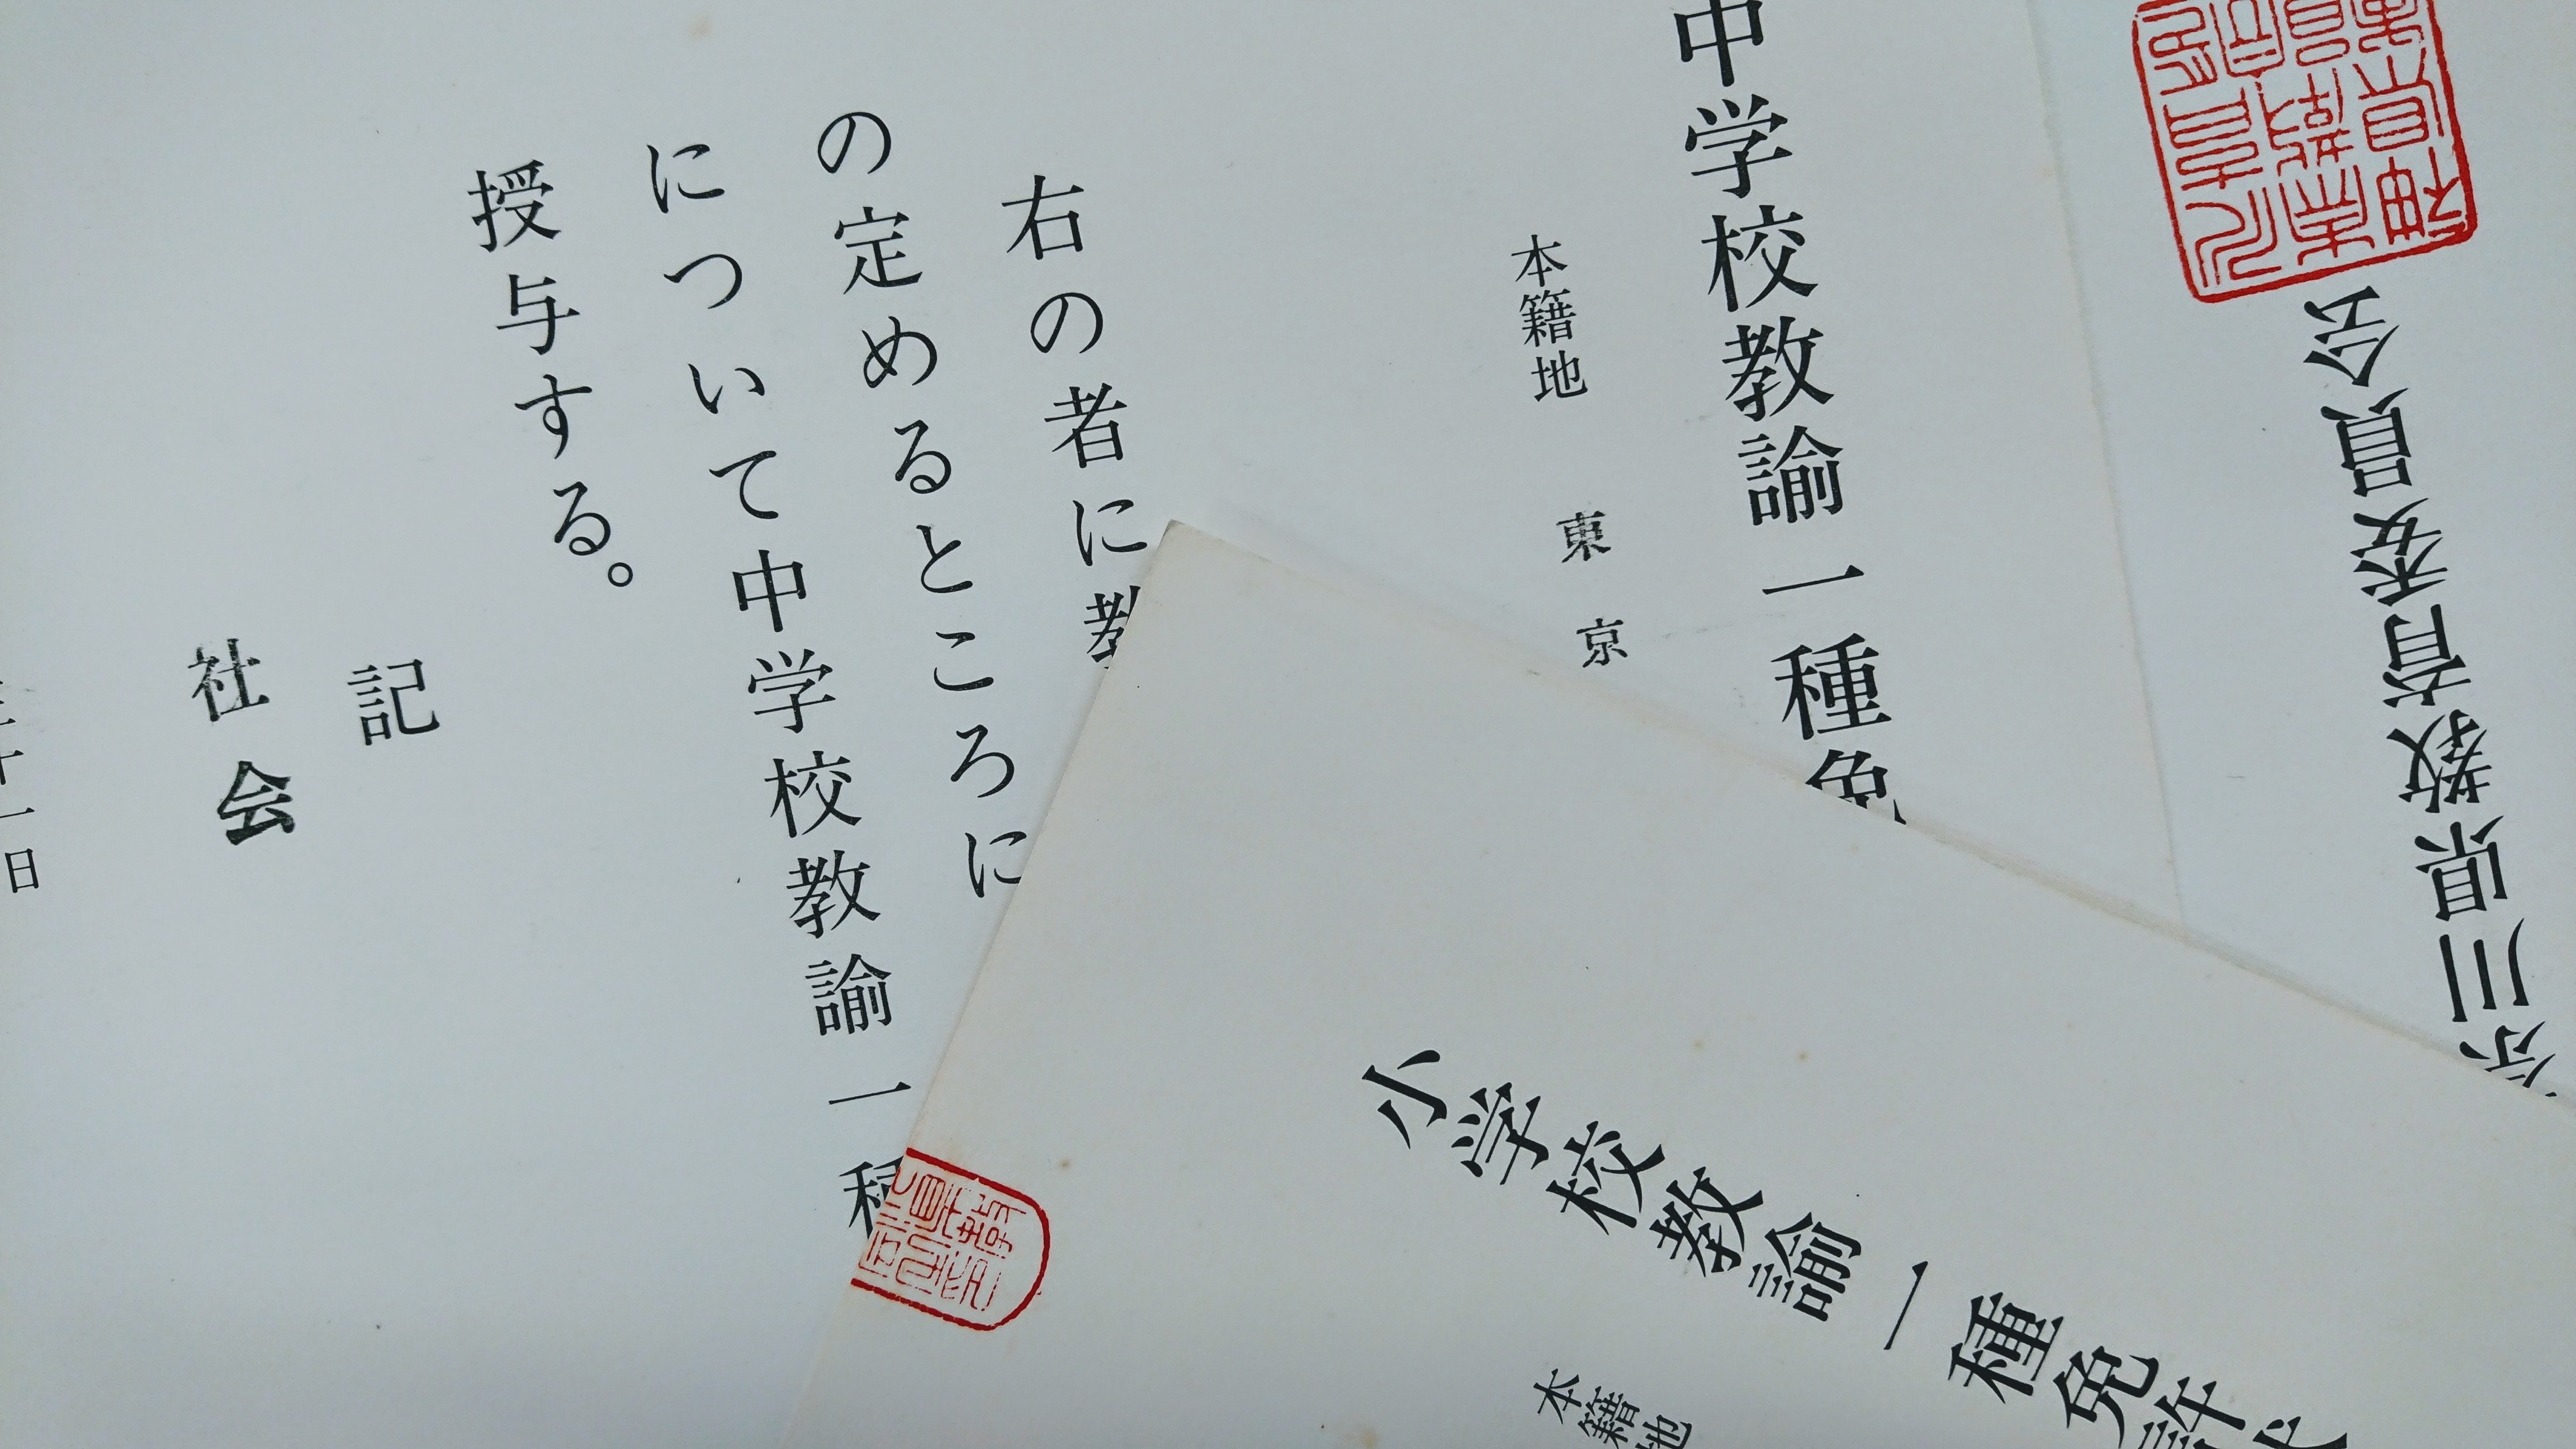 中学校教諭一種免
本籍地 東京
右の者に教
の定めるところに
について中学校教諭一種
授与する。
記
社会
十一日
川県教育委員会
小学校教諭一種免許
本籍地